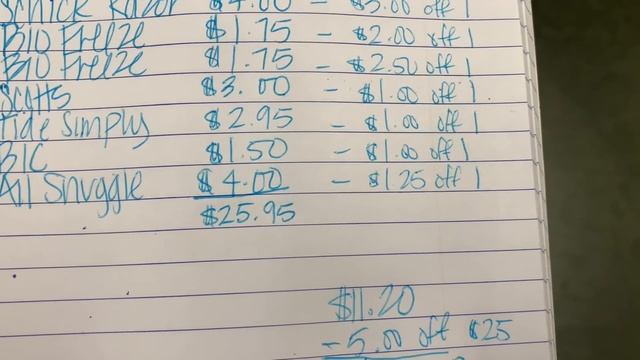 Schick Razor $4.00 - $3.00 off 1
Bio Freeze $1.75 - $2.00 off 1
Bio Freeze $1.75 - $2.50 off 1
Scotts $3.00 - $1.00 off 1
Tide Simply $2.95 - $1.00 off 1
BIC $1.50 - $1.00 off 1
All Snuggle $4.00 - $1.25 off 1
$25.95
$11.20
-5.00 off $25